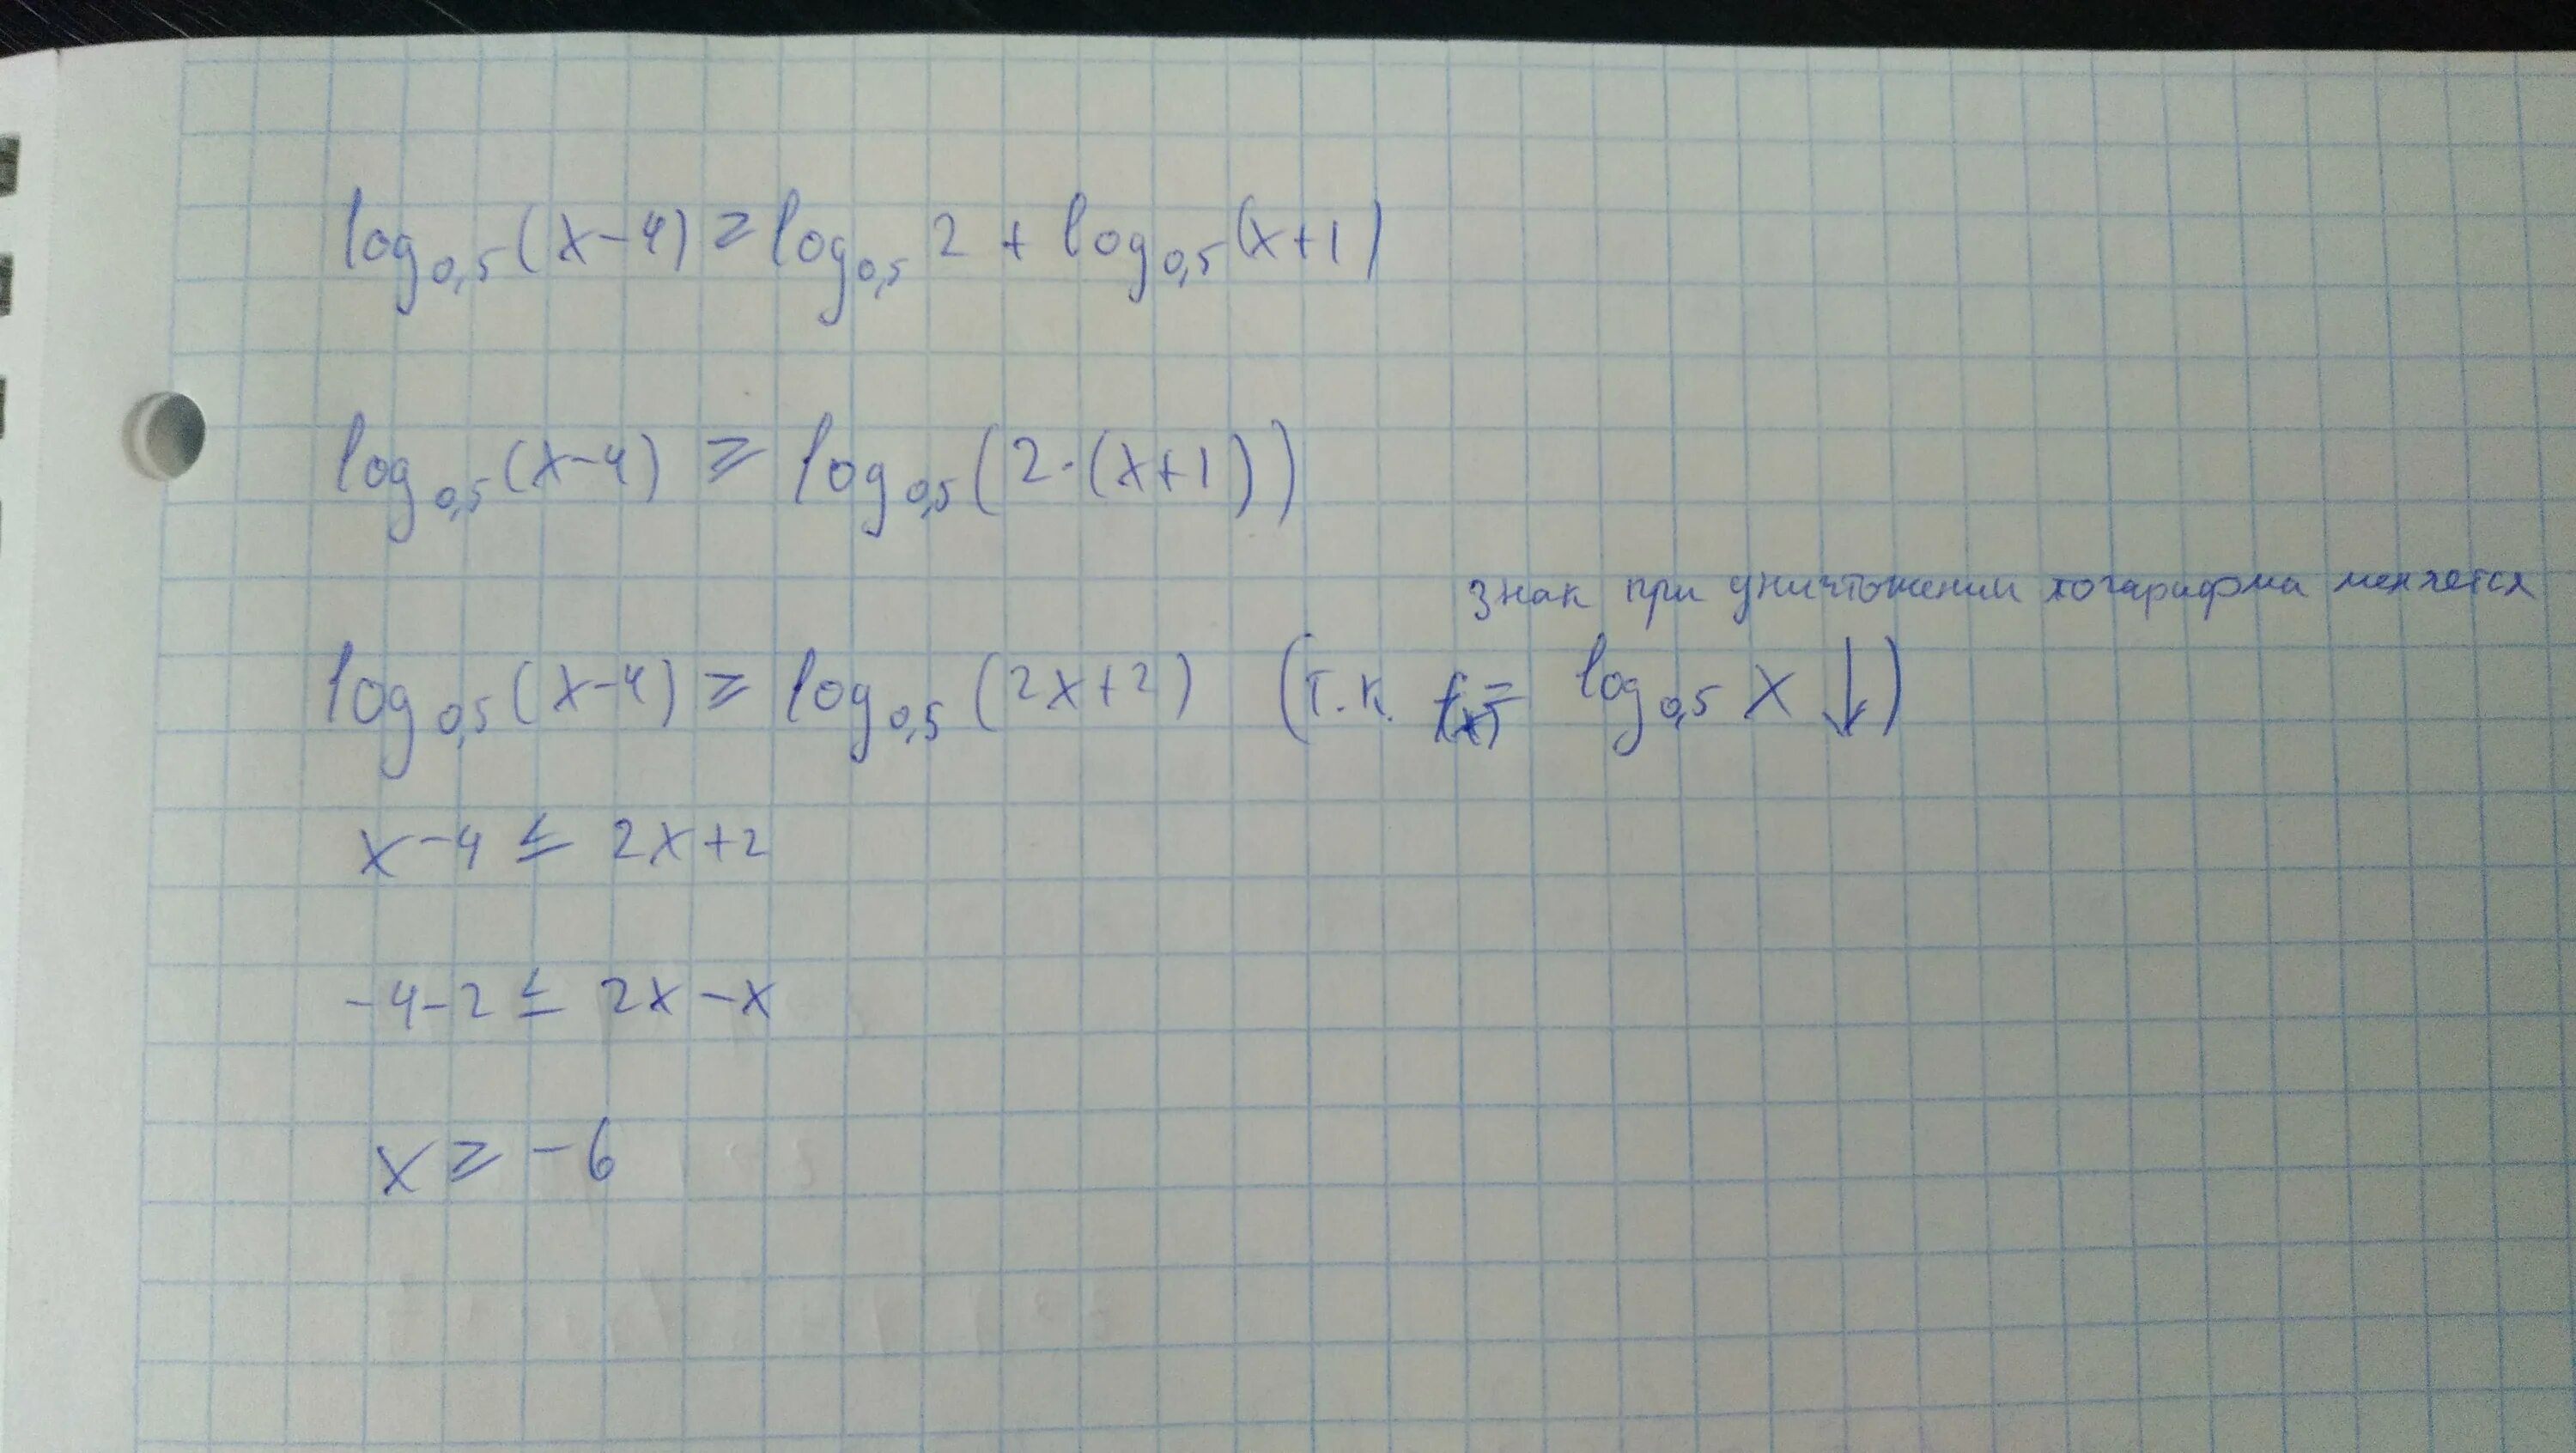 log₀,₅(x-4) ≥ log₀,₅ 2 + log₀,₅(x+1)
log₀,₅(x-4) ≥ log₀,₅(2·(x+1))
знак при уничтожении логарифма меняется
log₀,₅(x-4) ≥ log₀,₅(2x+2) (т.к. f(x)= log₀,₅ x ↓)
x-4 ≤ 2x+2
-4-2 ≤ 2x-x
x ≥ -6